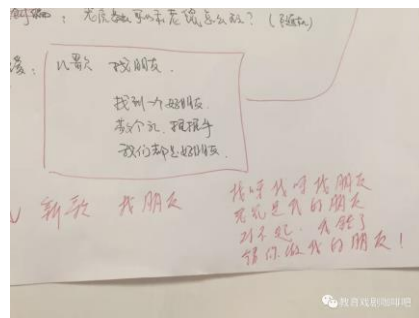 老虎 和老鼠怎么办？
儿歌 找朋友.
找到一个好朋友.
敬个礼.握握手
我们都是好朋友.
新歌 找朋友
找呀找呀找朋友
老鼠是我的朋友
对不起.我错了
请你做我的朋友！
教育戏剧咖啡吧